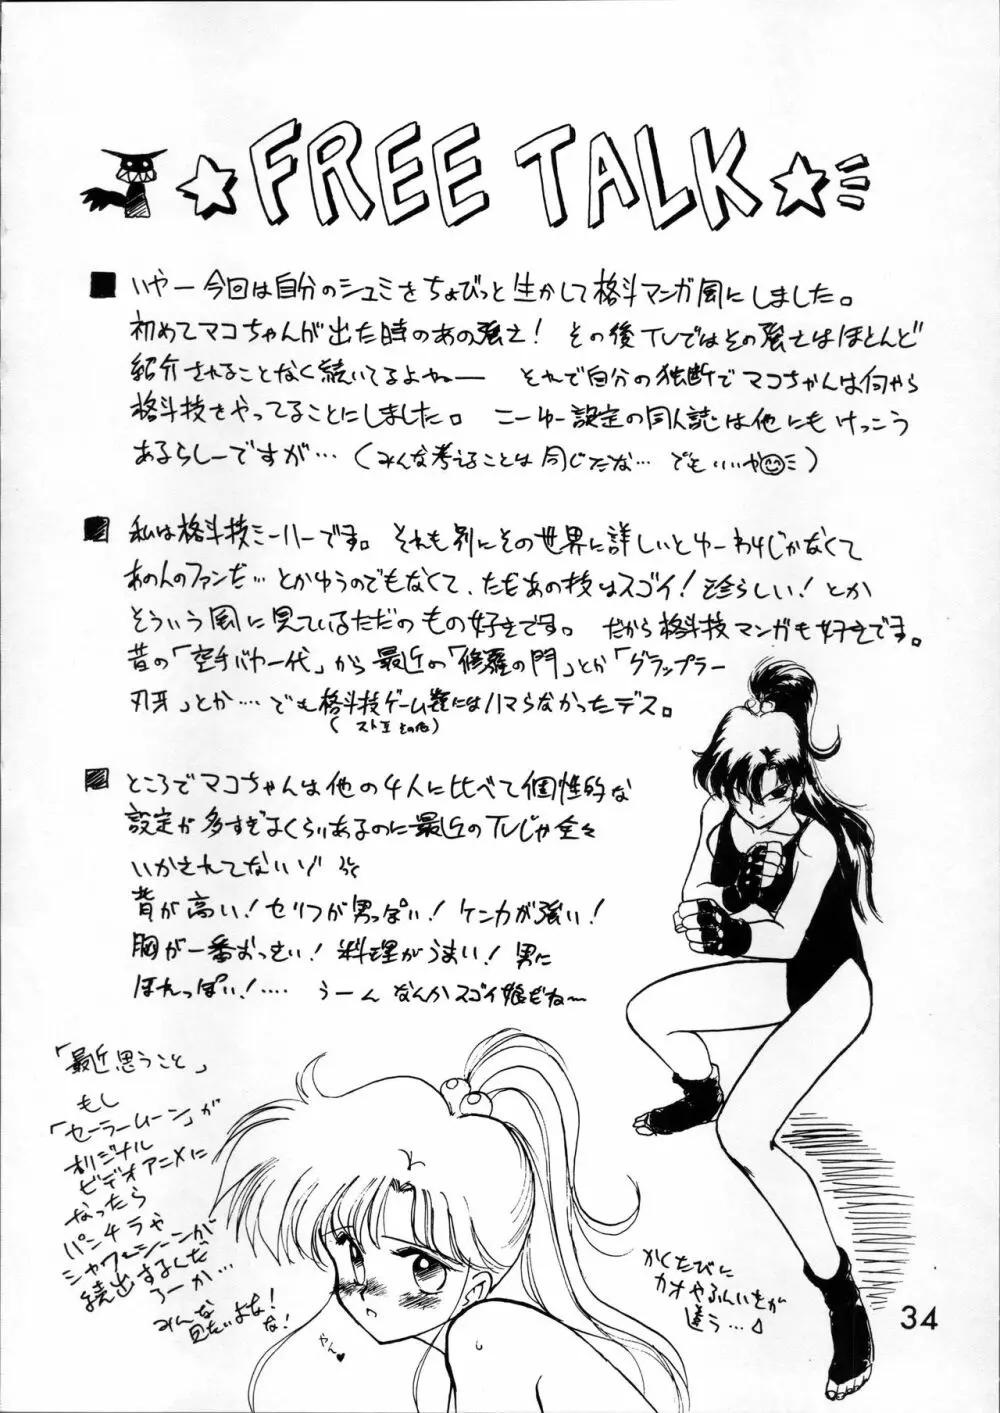 FREE TALK
いやー今回は自分のシュミをちょびっと生かして格斗マンガ風にしました。
初めてマコちゃんが出た時のあの強さ! その後TVではその強さはほとんど
紹介されることなく続いてるよねー それで自分の独断でマコちゃんは何やら
格斗技をやってることにしました。 こーゆー設定の同人誌は他にもけっこう
あるらしーですが…(みんな考えることは同じだな… でもいいや)
私は格斗技ミーハーです。 それも別にその世界に詳しいとゆーわけじゃなくて
あの人のファンだ…とかゆうのでもなくて、ただあの技はスゴイ!珍らしい!とか
そういう風に見ているただのもの好きです。 だから格斗技マンガも好きです。
昔の「空手バカ一代」から最近の「修羅の門」とか「グラップラー
刃牙」とか…でも格斗技ゲーム類にはハマらなかったデス。
(ストⅡその他)
ところでマコちゃんは他の4人に比べて個性的な
設定が多すぎるくらいあるのに最近のTVじゃ全々
いかされてないゾ
背が高い!セリフが男っぽい!ケンカが強い!
胸が一番おっきい!料理がうまい!男に
ほれっぽい!…. うーんなんかスゴイ娘だね〜
「最近思うこと」
もし
「セーラームーン」が
オリジナル
ビデオアニメに
なったら
パンチラや
シャワーシーンが
続出するんだ
ろーか…
みんな
見たいよな!
な!
やん♥
かくたびに
カオやふんいきが
違う…
34